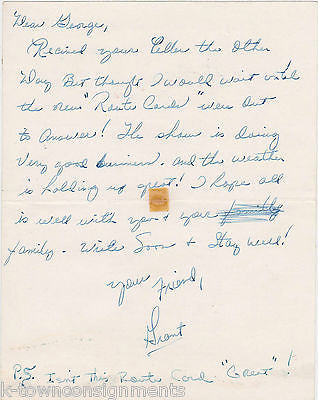 Dear George,
Recived your Letter the other
Day But thought I would wait until
the new "Route Cards" were out
to Answer! The show is doing
Very good business. and the weather
is holding up great! I hope all
is well with you & your family
family. Write Soon & Stay Well!
your Friend,
Grant
P.S. Isn't this Route Card "Great"!
k-townconsignments